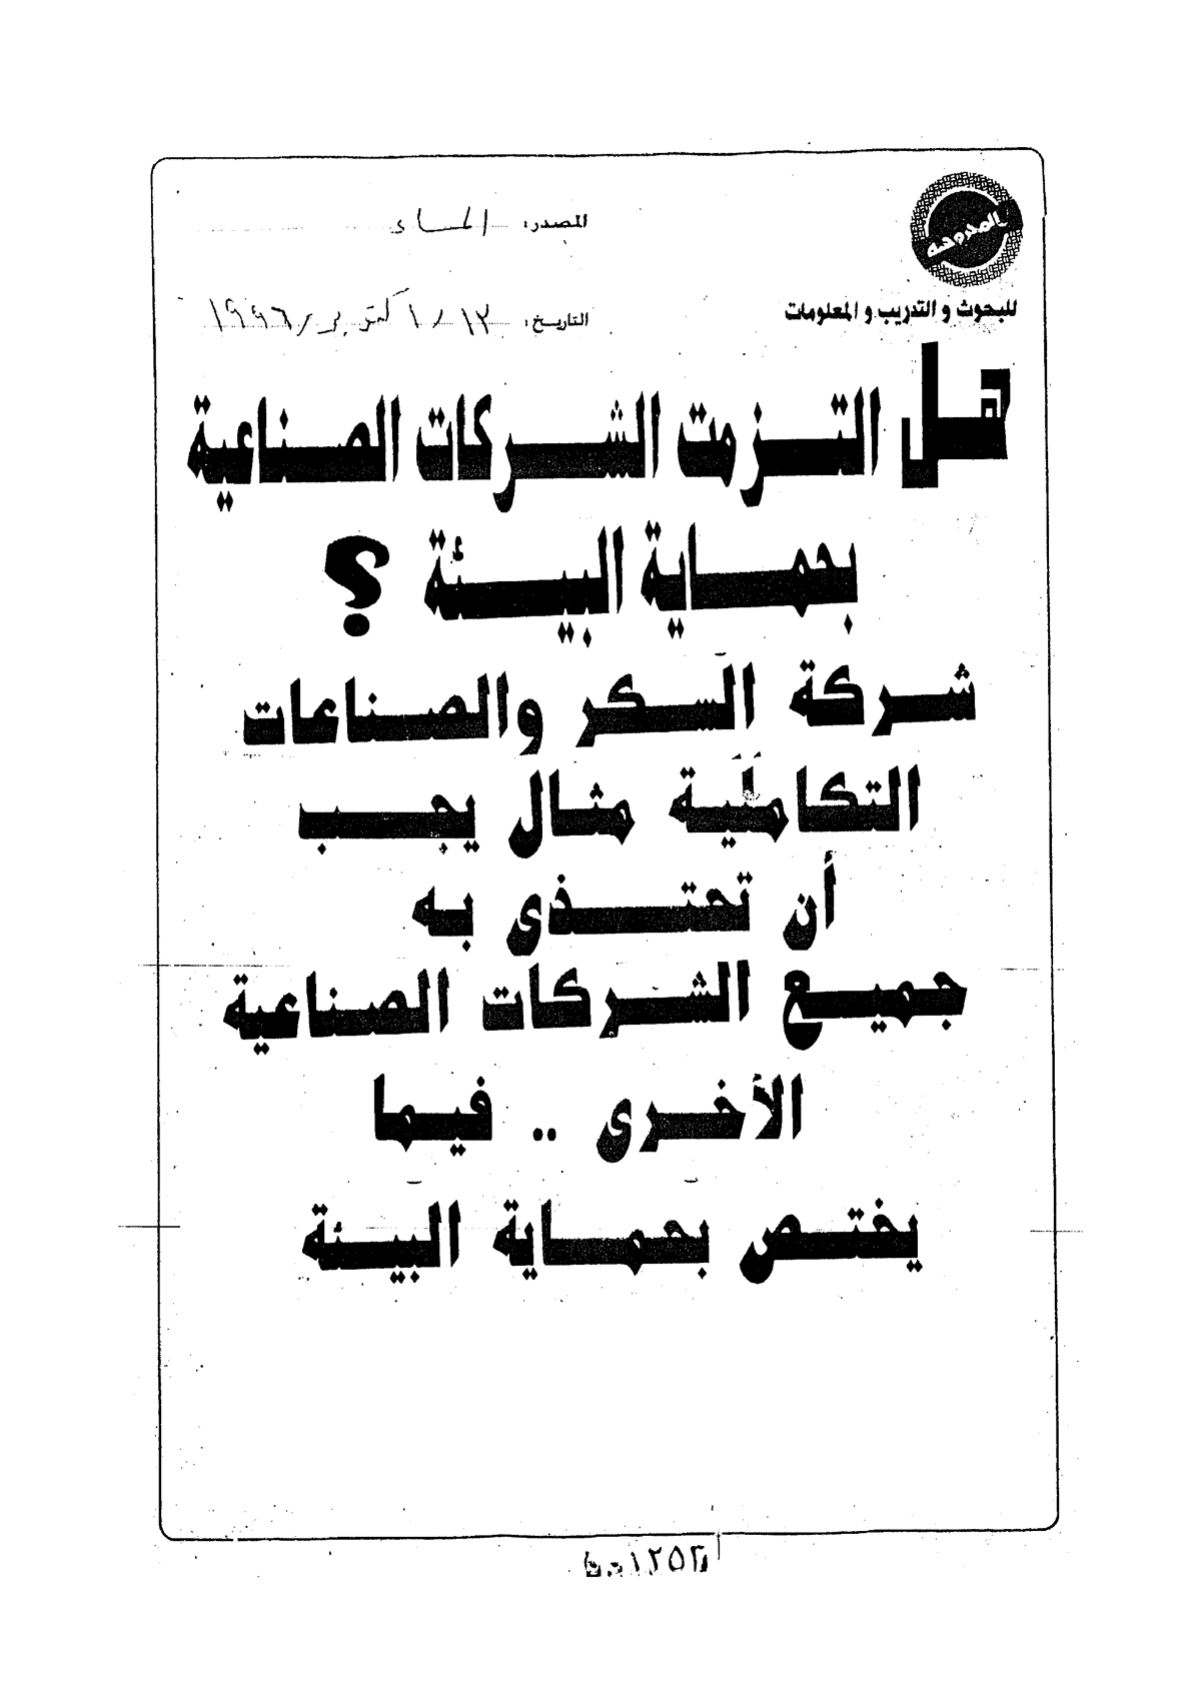 المصدر: المساء
للبحوث و التدريب و المعلومات
التاريخ: ١٢ / أكتوبر / ١٩٩٦
هل التزمت الشركات الصناعية
بحماية البيئة ؟
شركة السكر والصناعات
التكاملية مثال يجب
أن تحتذى به
جميع الشركات الصناعية
الأخرى .. فيما
يختص بحماية البيئة